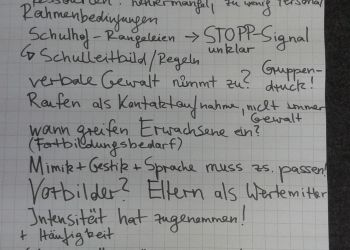 Lehrermangel, zu wenig Personal
Rahmenbedingungen
Schulhof-Rangeleien → STOPP-Signal
unklar
↳ Schulleitbild/Regeln
verbale Gewalt nimmt zu? Gruppen-
druck!
Raufen als Kontaktaufnahme, nicht immer
Gewalt
wann greifen Erwachsene ein?
(Fortbildungsbedarf)
Mimik + Gestik + Sprache muss zs. passen!
Vorbilder? Eltern als Wertemittler
Intensität hat zugenommen!
+ Häufigkeit